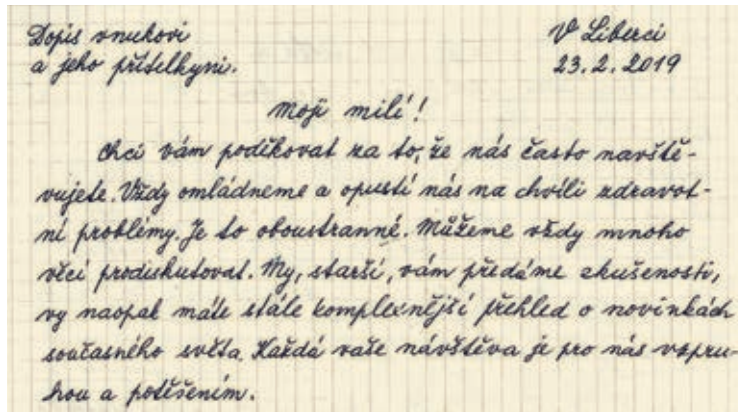 Dopis vnukovi
a jeho přítelkyni.
V Liberci
23.2.2019
Moji milí!
Chci vám poděkovat za to, že nás často navště-
vujete. Vždy omládneme a opustí nás na chvíli zdravot-
ní problémy. Je to oboustranné. Můžeme vždy mnoho
věcí prodiskutovat. My, starší, vám předáme zkušenosti,
vy naopak máte stále komplexnější přehled o novinkách
současného světa. Každá vaše návštěva je pro nás vzpru-
hou a potěšením.